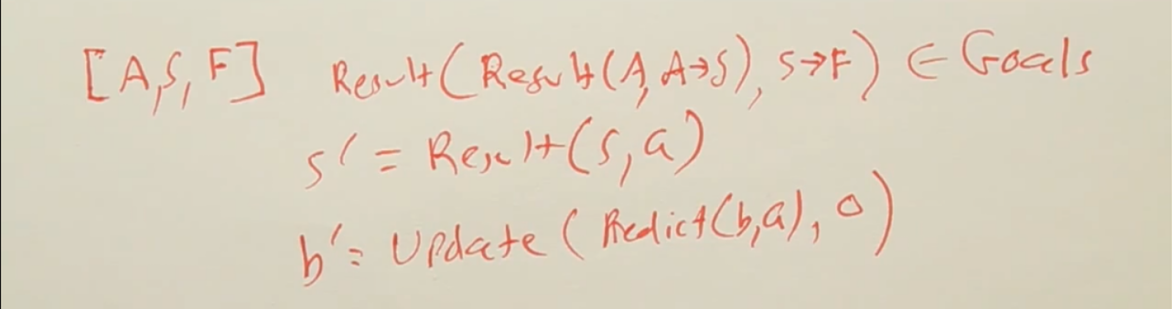 [A,S,F] Result(Result(A,A→S),S→F) ∈ Goals
s' = Result(s,a)
b' = Update(Predict(b,a),o)